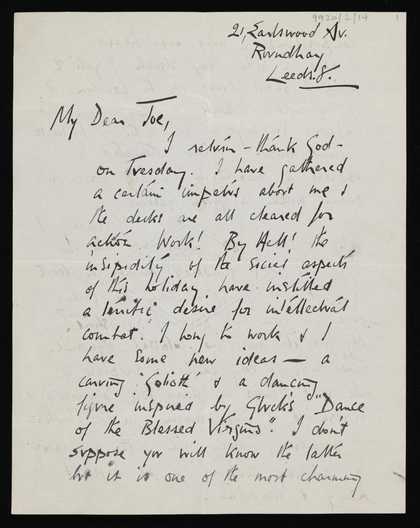 9920/2/14 1
21, Earlswood Av.
Roundhay
Leeds. 8.
My Dear Joe,
I return - thank God -
on Tuesday. I have gathered
a certain impetus about me &
the decks are all cleared for
action. Work! By Hell! the
insipidity of the social aspects
of this holiday have instilled
a terrific desire for intellectual
combat. I long to work & I
have some new ideas — a
carving 'Goliath' & a dancing
figure inspired by Gluck's "Dance
of the Blessed Virgins". I don't
suppose you will know the latter
but it is one of the most charming